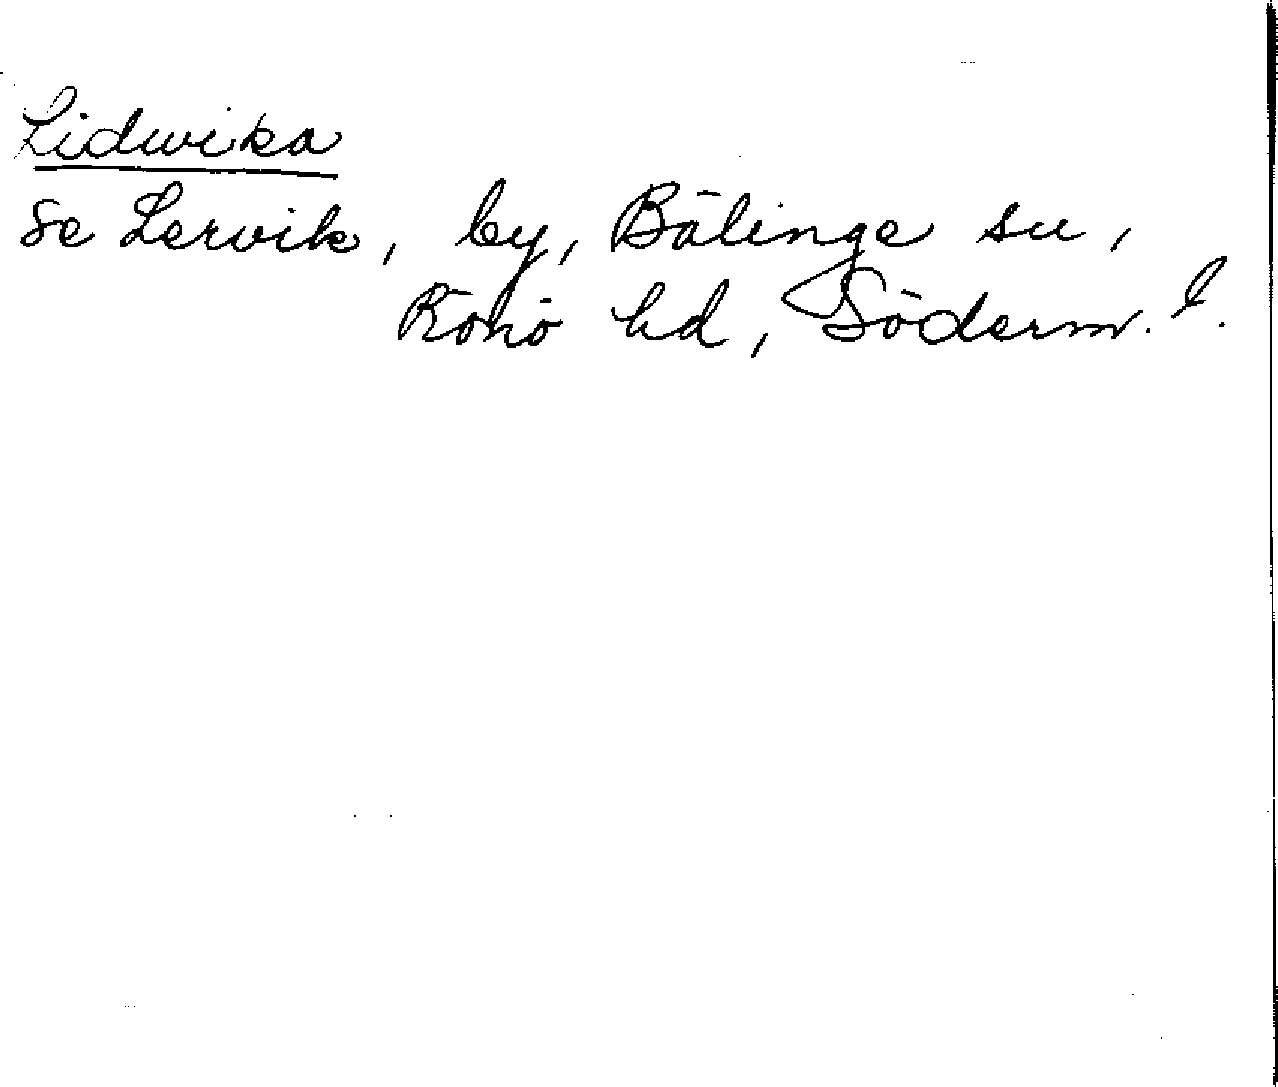 Lidwika
se Lervik, by, Bälinge sn,
Rönö hd, Söderm. l.